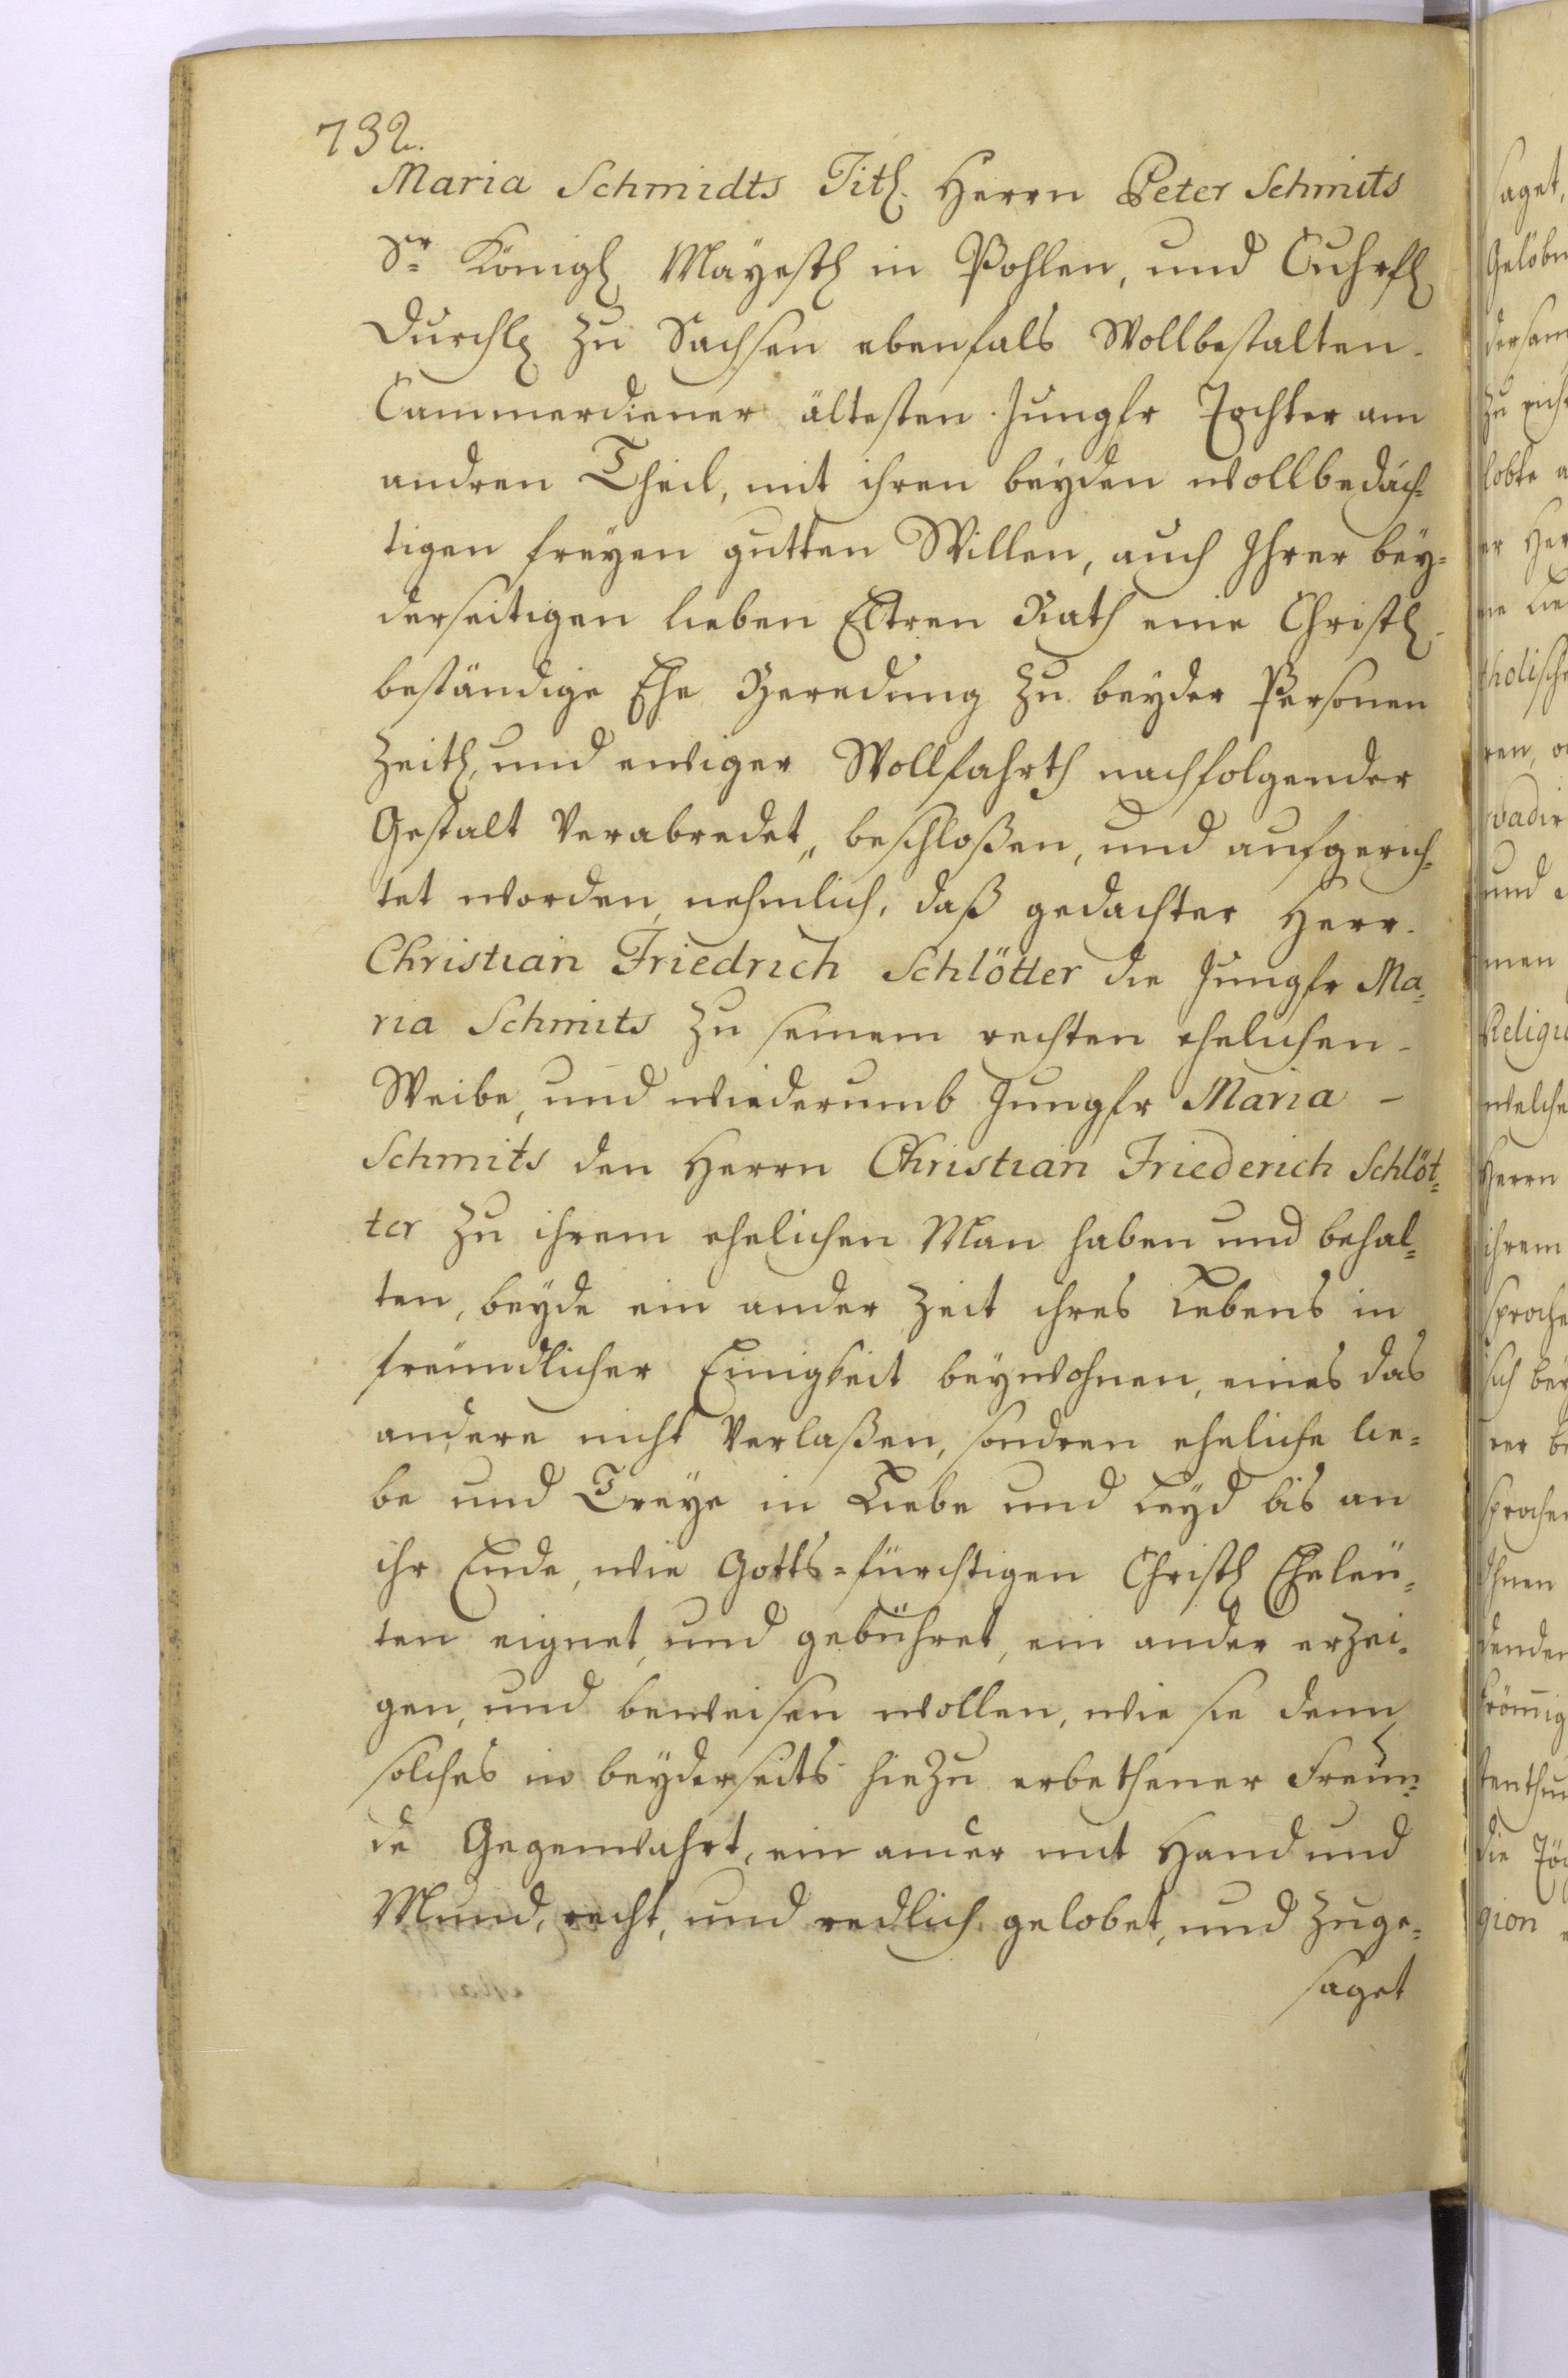 732.
Maria Schmidts Titl. Herrn Peter Schmits
Sr Königl Mäyestl in Pohlen, und Cuhrfl
Durchl zu Sachsen ebenfals Wollbestalten
Cammerdiener ältesten Jungfr Tochter am
andren Theil, mit ihren beyden wollbedäch¬
tigen freyen gutten Willen, auch Ihrer bey¬
derseitigen lieben Eltren Rath eine Christl
beständige Ehe Beredung zu beyder Personen
Zeitl, und ewiger Wollfahrth nachfolgender
Gestalt Verabredet, beschloßen, und aufgerich¬
tet worden, nehmlich, daß gedachter Herr
Christian Friedrich Schlötter die Jungfr Ma¬
ria Schmits zu seinem rechten ehelichen
Weibe, und wiederumb Jungfr Maria
Schmits den Herrn Christian Friederich Schlöt¬
ter zu ihrem ehelichen Man haben und behal¬
ten, beyde ein ander Zeit ihres Lebens in
freündlicher Einigkeit beywohnen, eines das
andere nicht Verlaßen, sondren eheliche lie¬
be und Treye in Liebe und Leyd bis an
ihr Ende, wie Gotts=fürchtigen Christl Eheleü¬
ten eignet, und gebühret, ein ander erzei¬
gen, und beweisen wollen, wie sie denn
solches in beyderseits hiezu erbethener Freün¬
de Gegenwahrt, ein ander mit Hand und
Mund, recht, und redlich gelobet, und zuge¬
saget